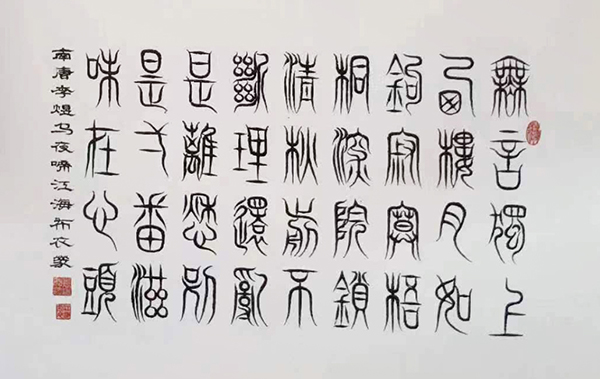 無言獨上
西樓月如
鉤寂寞梧
桐深院鎖
清秋剪不
斷理還亂
是離愁別
是弌番滋
味在心頭
南唐李煜烏夜啼江海布衣篆